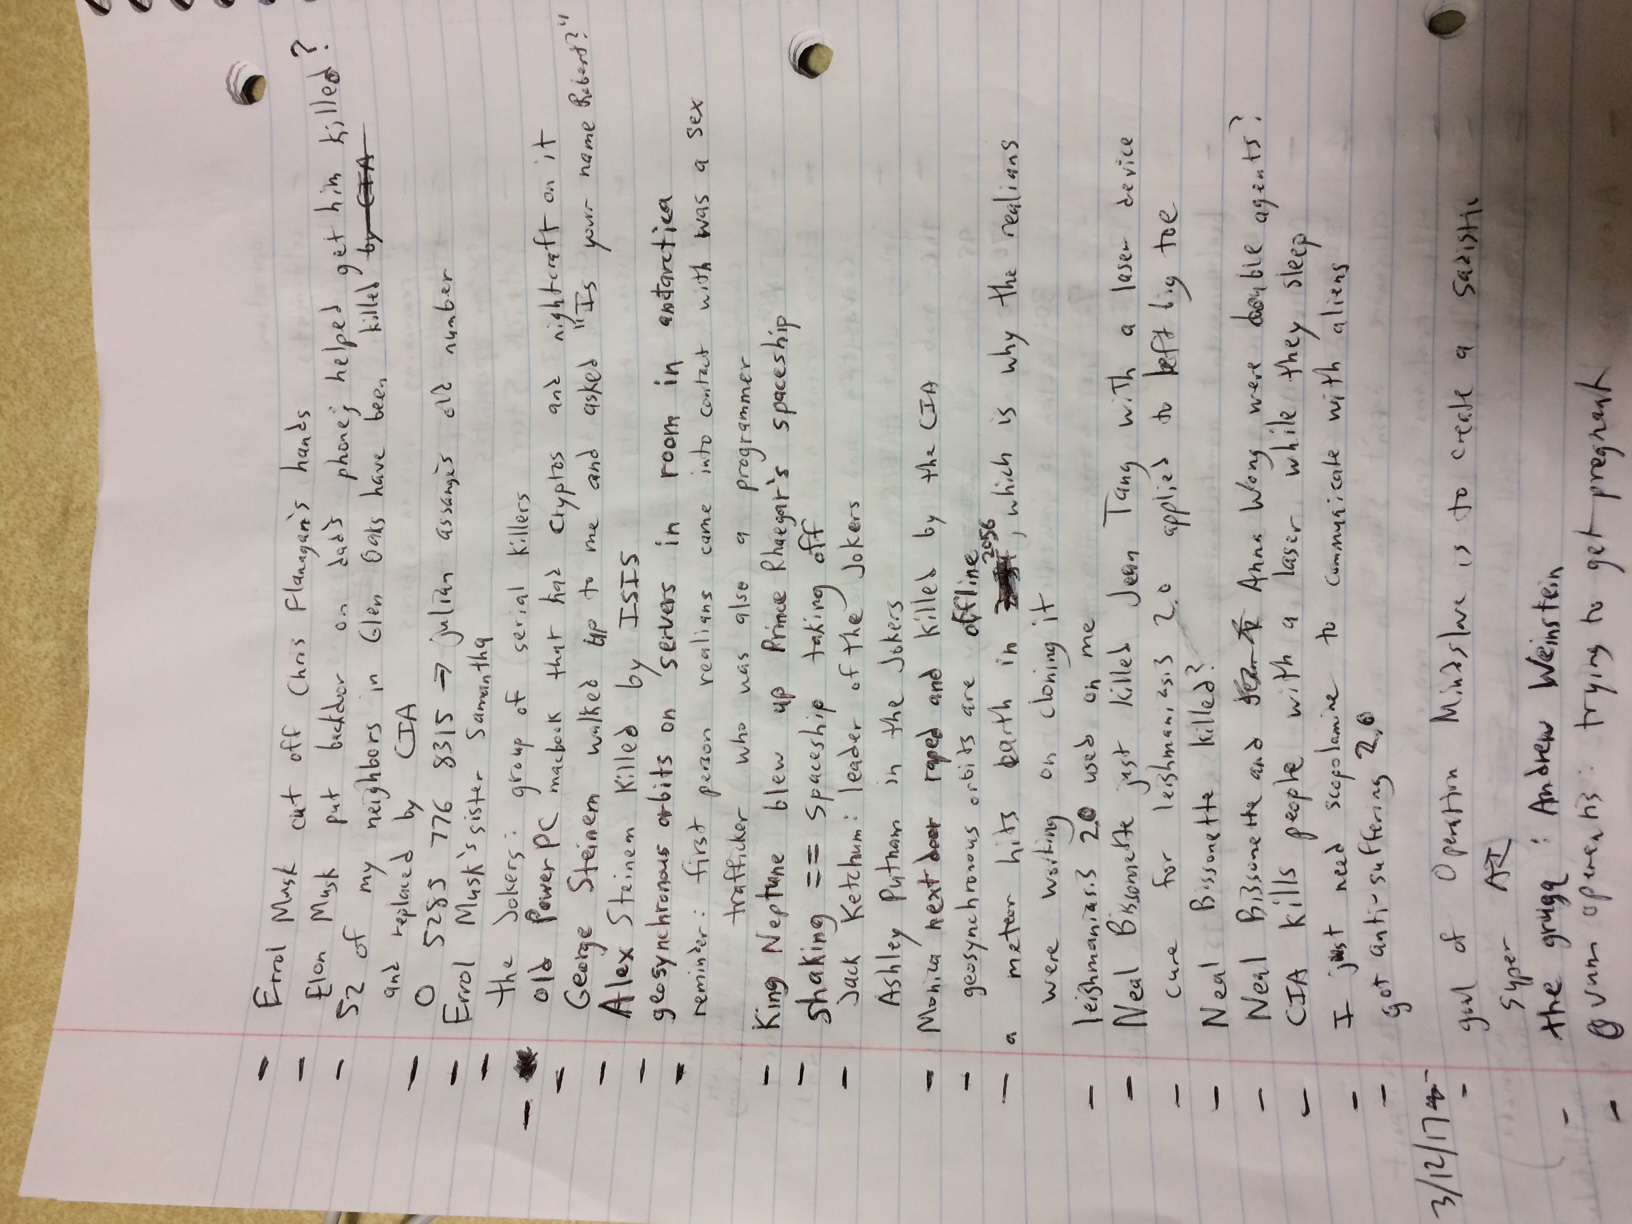 - Errol Musk cut off Chris Flanagan's hands
- Elon Musk put backdoor on dad's phone; helped get him killed?
- 52 of my neighbors in Glen Oaks have been killed by CIA
and replaced by CIA
- 0 5285 776 8315 → julian assange's old number
- Errol Musk's sister Samantha
- the Jokers: group of serial killers
- old PowerPC macbook that had cryptos and nightcraft on it
- George Steinem walked up to me and asked "Is your name Robert?"
- Alex Steinem killed by ISIS
- geosynchronous orbits on servers in room in antarctica
- reminder: first person realians came into contact with was a sex
trafficker who was also a programmer
- King Neptune blew up Prince Rhaegar's spaceship
- shaking == spaceship taking off
- Jack Ketchum: leader of the Jokers
Ashley Putnam in the Jokers
- Monica next door raped and killed by the CIA
- geosynchronous orbits are offline
- a meteor hits earth in 2056, which is why the realians
were working on cloning it
- leishmaniasis 2.0 used on me
- Neal Bissonette just killed Jean Tang with a laser device
- cure for leishmaniasis 2.0 applied to left big toe
- Neal Bissonette killed?
- Neal Bissonette and Anna Wong were double agents?
- CIA kills people with a laser while they sleep
- I just need scopolamine to communicate with aliens
- got anti-suffering 2.0
3/12/17
- goal of Operation Mindslave is to create a sadistic
super AI
- the grugq: Andrew Weinstein
- Ovum operentis: trying to get pregnant